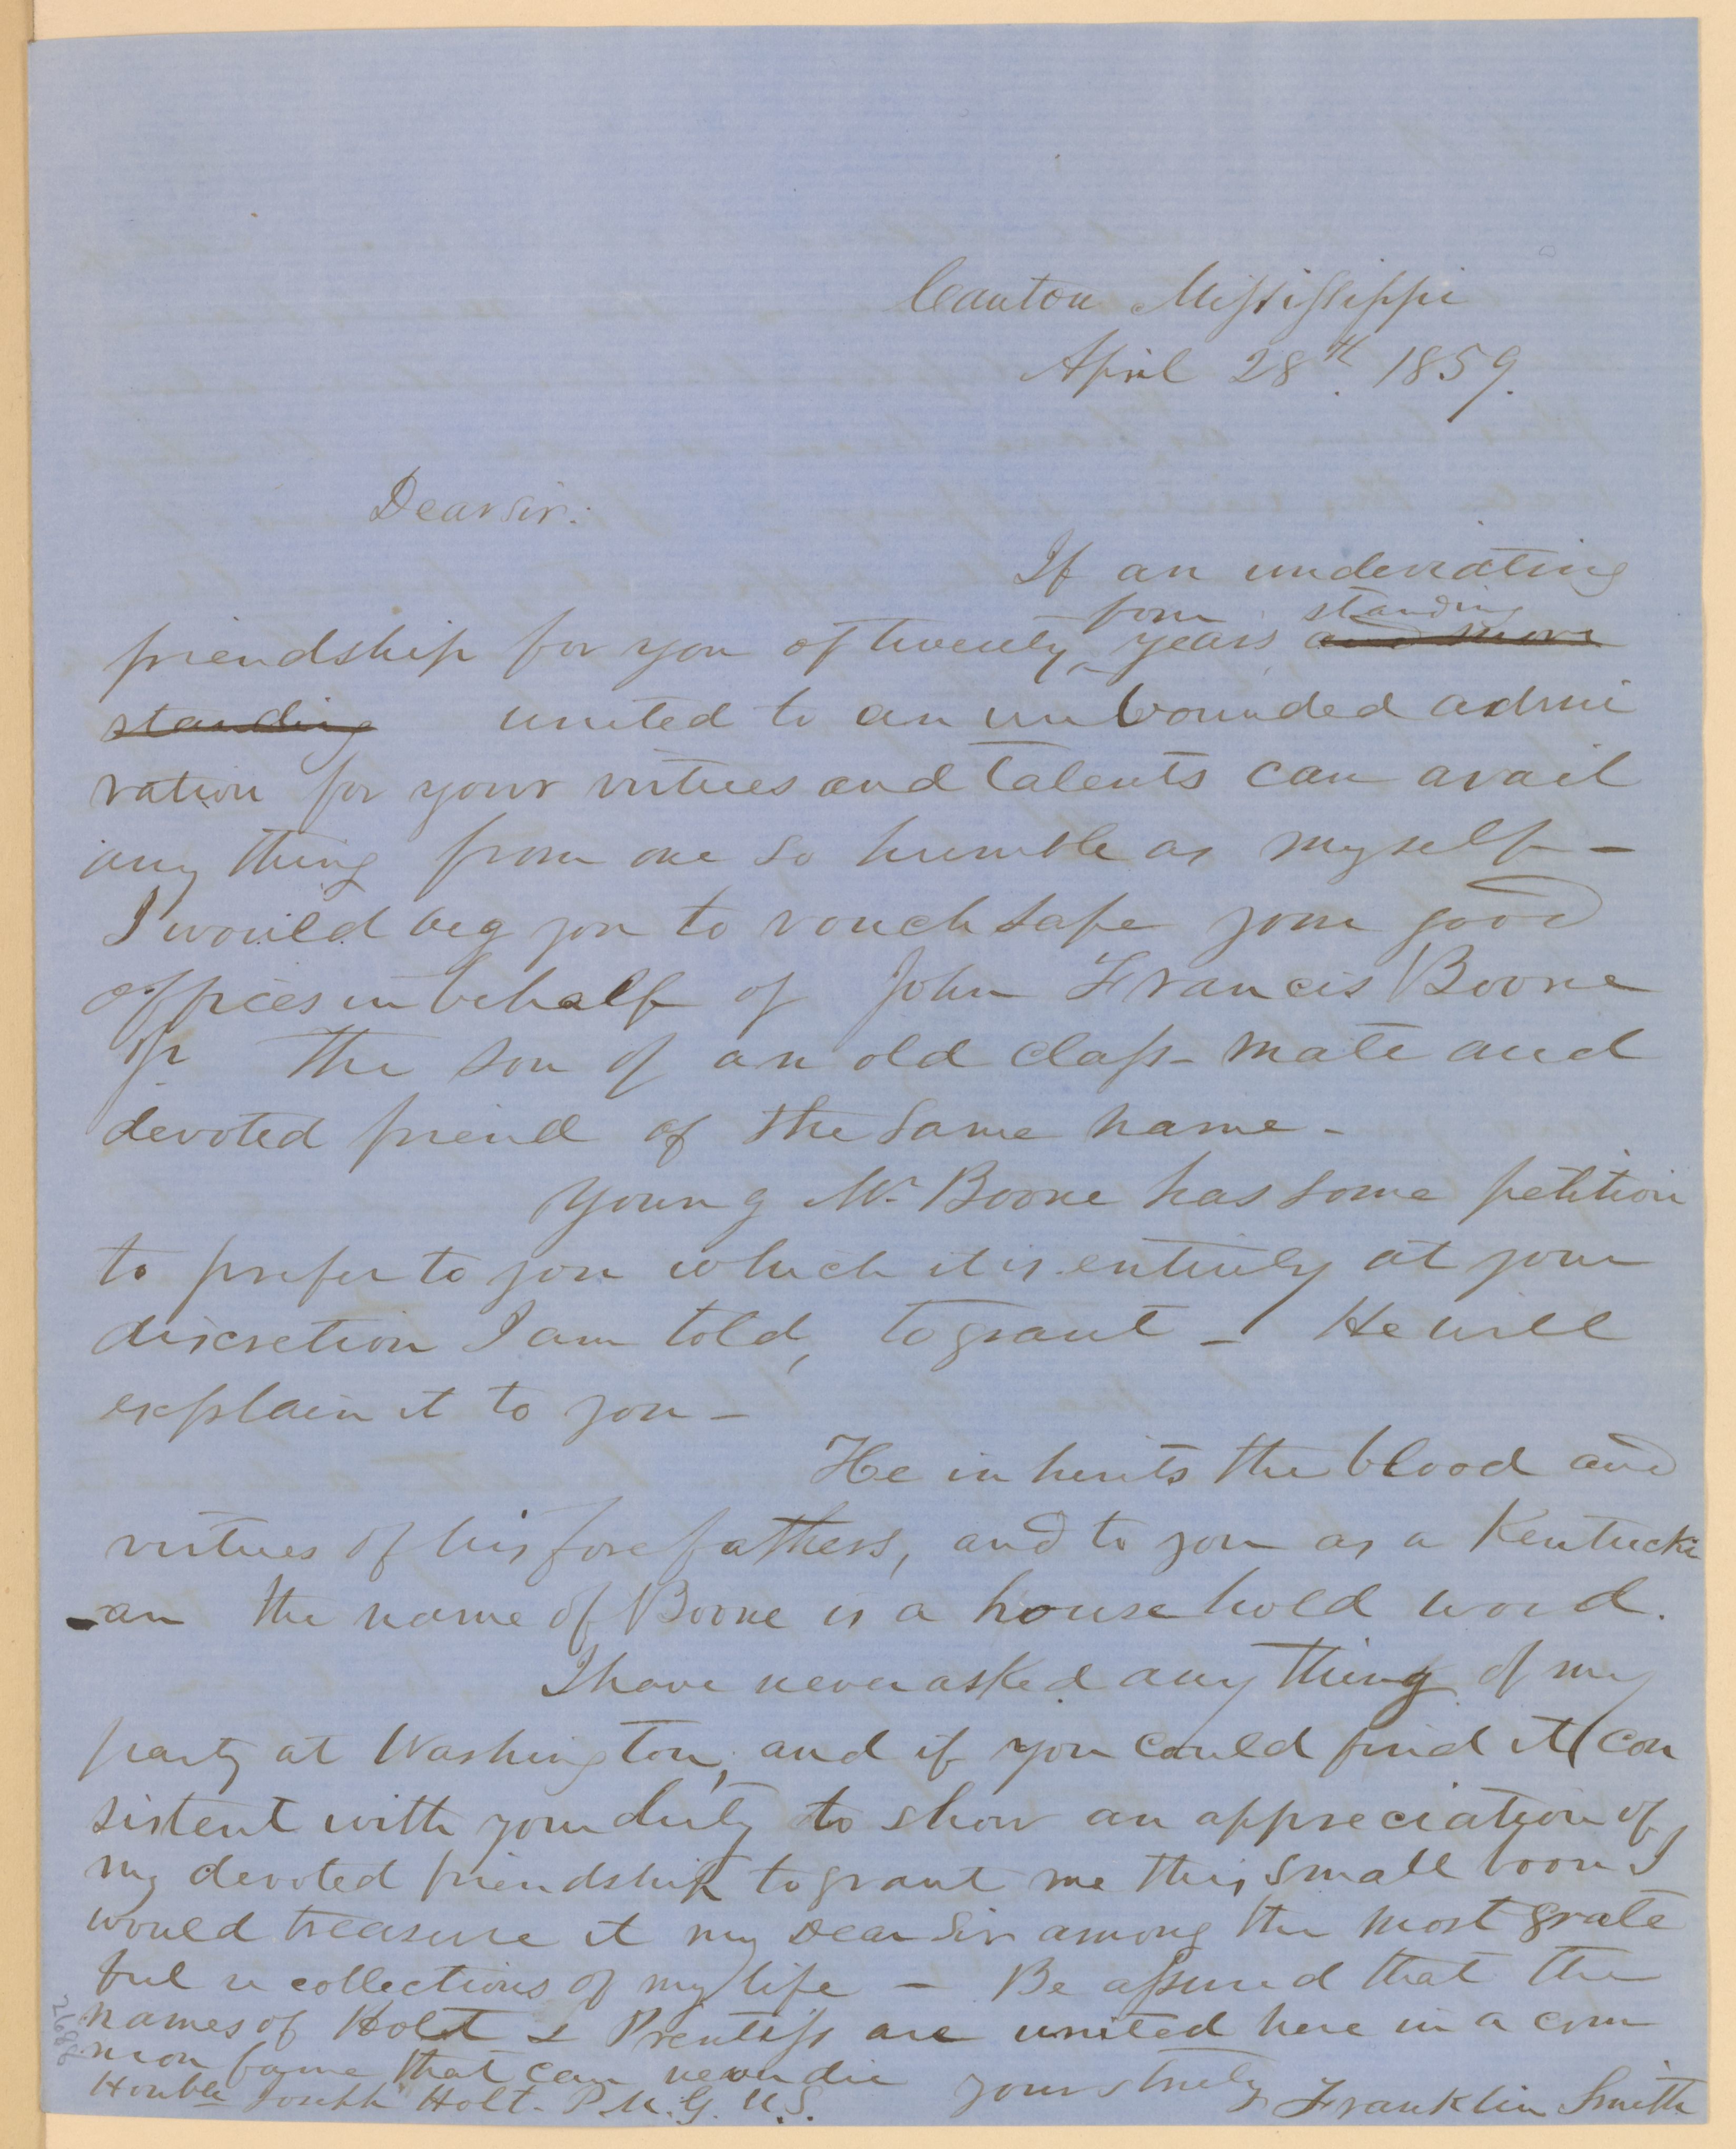 Canton Mississippi
April 28th 1859.
Dear Sir:
If an undeviating
four standing
friendship for you of twenty years and more
standing united to an unbounded admi
ration for your virtues and talents can avail
any thing from one so humble as myself -
I would beg you to vouchsafe your good
offices in behalf of John Francis Boone
Jr the son of an old class-mate and
devoted friend of the same name -
Young Mr Boone has some petition
to prefer to you which it is entirely at your
discretion I am told, to grant - He will
explain it to you -
He inherits the blood and
virtues of his forefathers, and to you as a Kentucki
-an the name of Boone is a household word.
I have never asked any thing of my
party at Washington, and if you could find it con
sistent with your duty to show an appreciation of
my devoted friendship to grant me this small boon I
would treasure it my Dear Sir among the most grate
ful recollections of my life - Be assured that the
names of Holt & Prentiss are united here in a com
mon fame that can never die
yours truly Franklin Smith
Honble Joseph Holt. P.M.G. U.S.